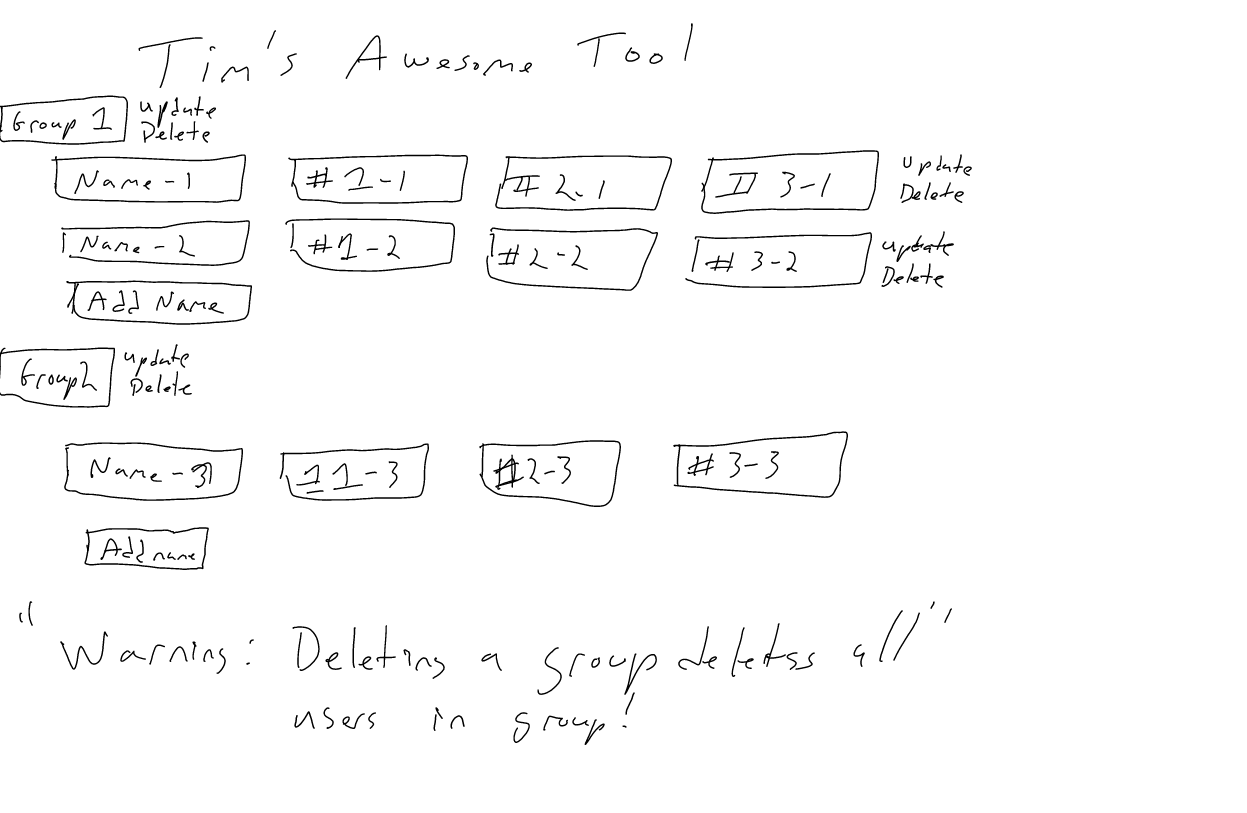 Tim's Awesome Tool
Group 1 update
Delete
Name-1 # 1-1 # 2-1 # 3-1 update
Delete
Name-2 #1-2 #2-2 # 3-2 update
Delete
Add Name
Group2 update
Delete
Name-3 1-3 #2-3 # 3-3
Add name
"Warning: Deleting a group deletss all"
users in group!